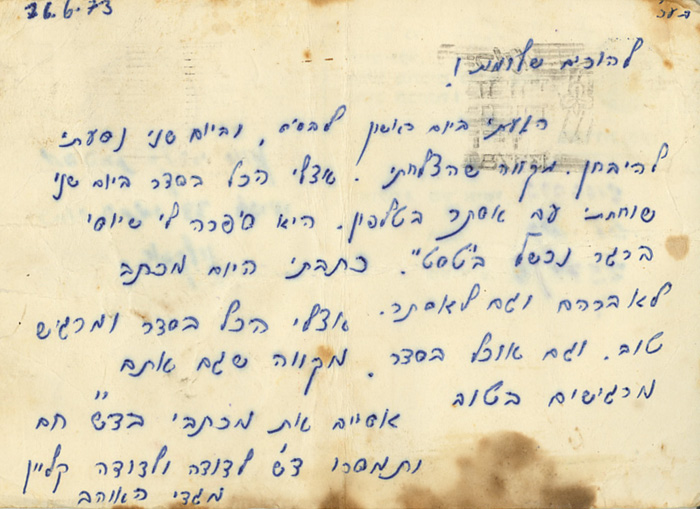 26.6.73
בע״ה
להורים שלומות!
הגעתי ביום ראשון לבסיס, וביום שני נסעתי
להיבחן. מקווה שהצלחתי. אצלי הכל בסדר ביום שני
שוחחתי עם אסתר בטלפון. היא סיפרה לי שיוסי
ברגר נכשל ב"טסט". כתבתי היום מכתב
לאברהם וגם לאסתר. אצלי הכל בסדר ומרגיש
טוב. וגם אוכל בסדר. מקווה שגם אתם
מרגישים בטוב
אסיים את מכתבי בד"ש חם
ותמסרו ד"ש לדודה ולדודה קליין
מגדי האוהב